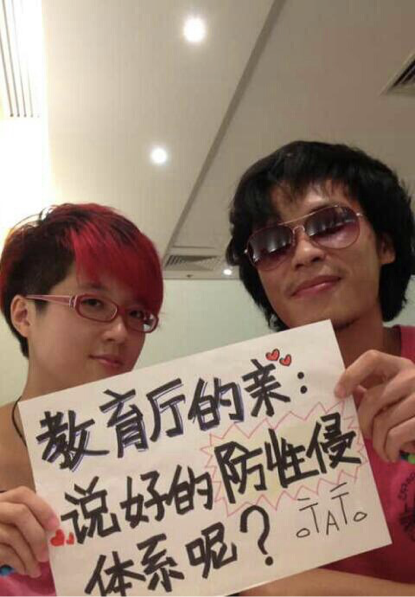 教育厅的亲:
说好的防性侵
体系呢? oTATo